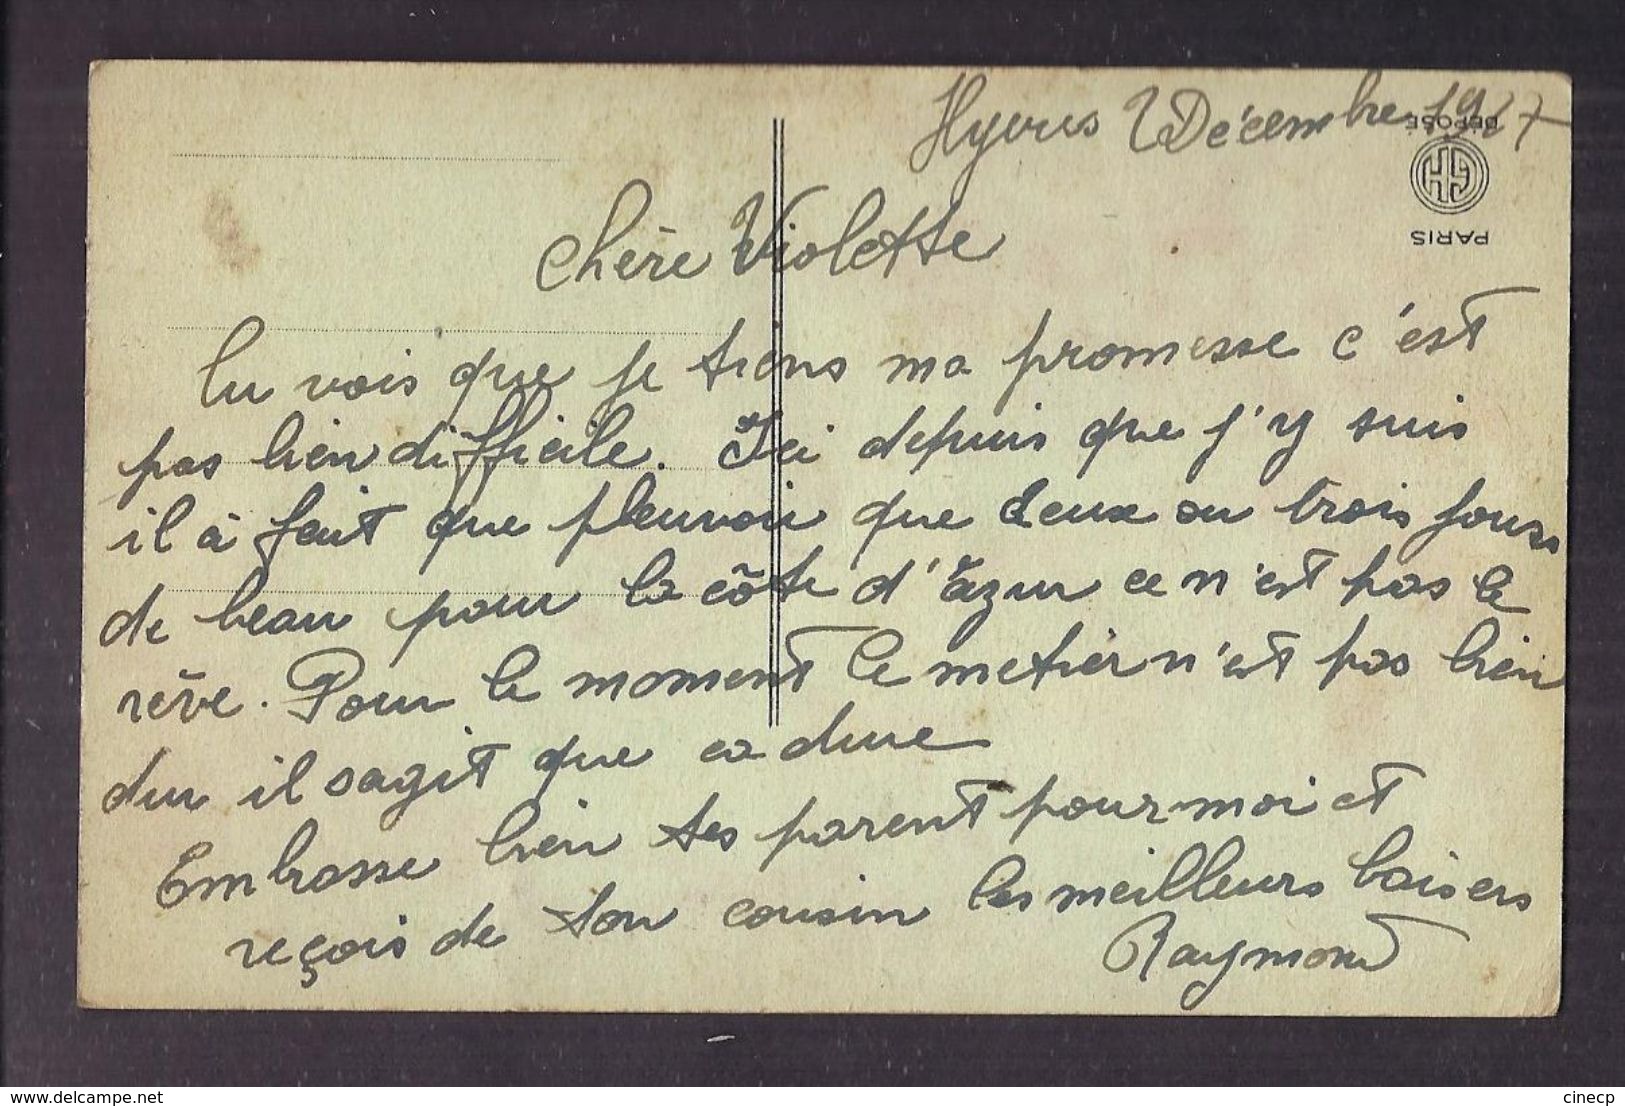 Hyeres Décembre 1927
DÉPOSÉ
PARIS
Chère Violette
Tu vois que je tiens ma promesse c'est
pas bien difficile. Ici depuis que j'y suis
il à fait que pleuvoir que deux ou trois jours
de beau pour la côte d'àzur ce n'est pas le
rêve. Pour le moment le metier n'est pas bien
dur il sagit que ca dure
Embrasse bien tes parent pour moi et
reçois de ton cousin les meilleurs baisers
Raymond
delcampe.net
cinecp